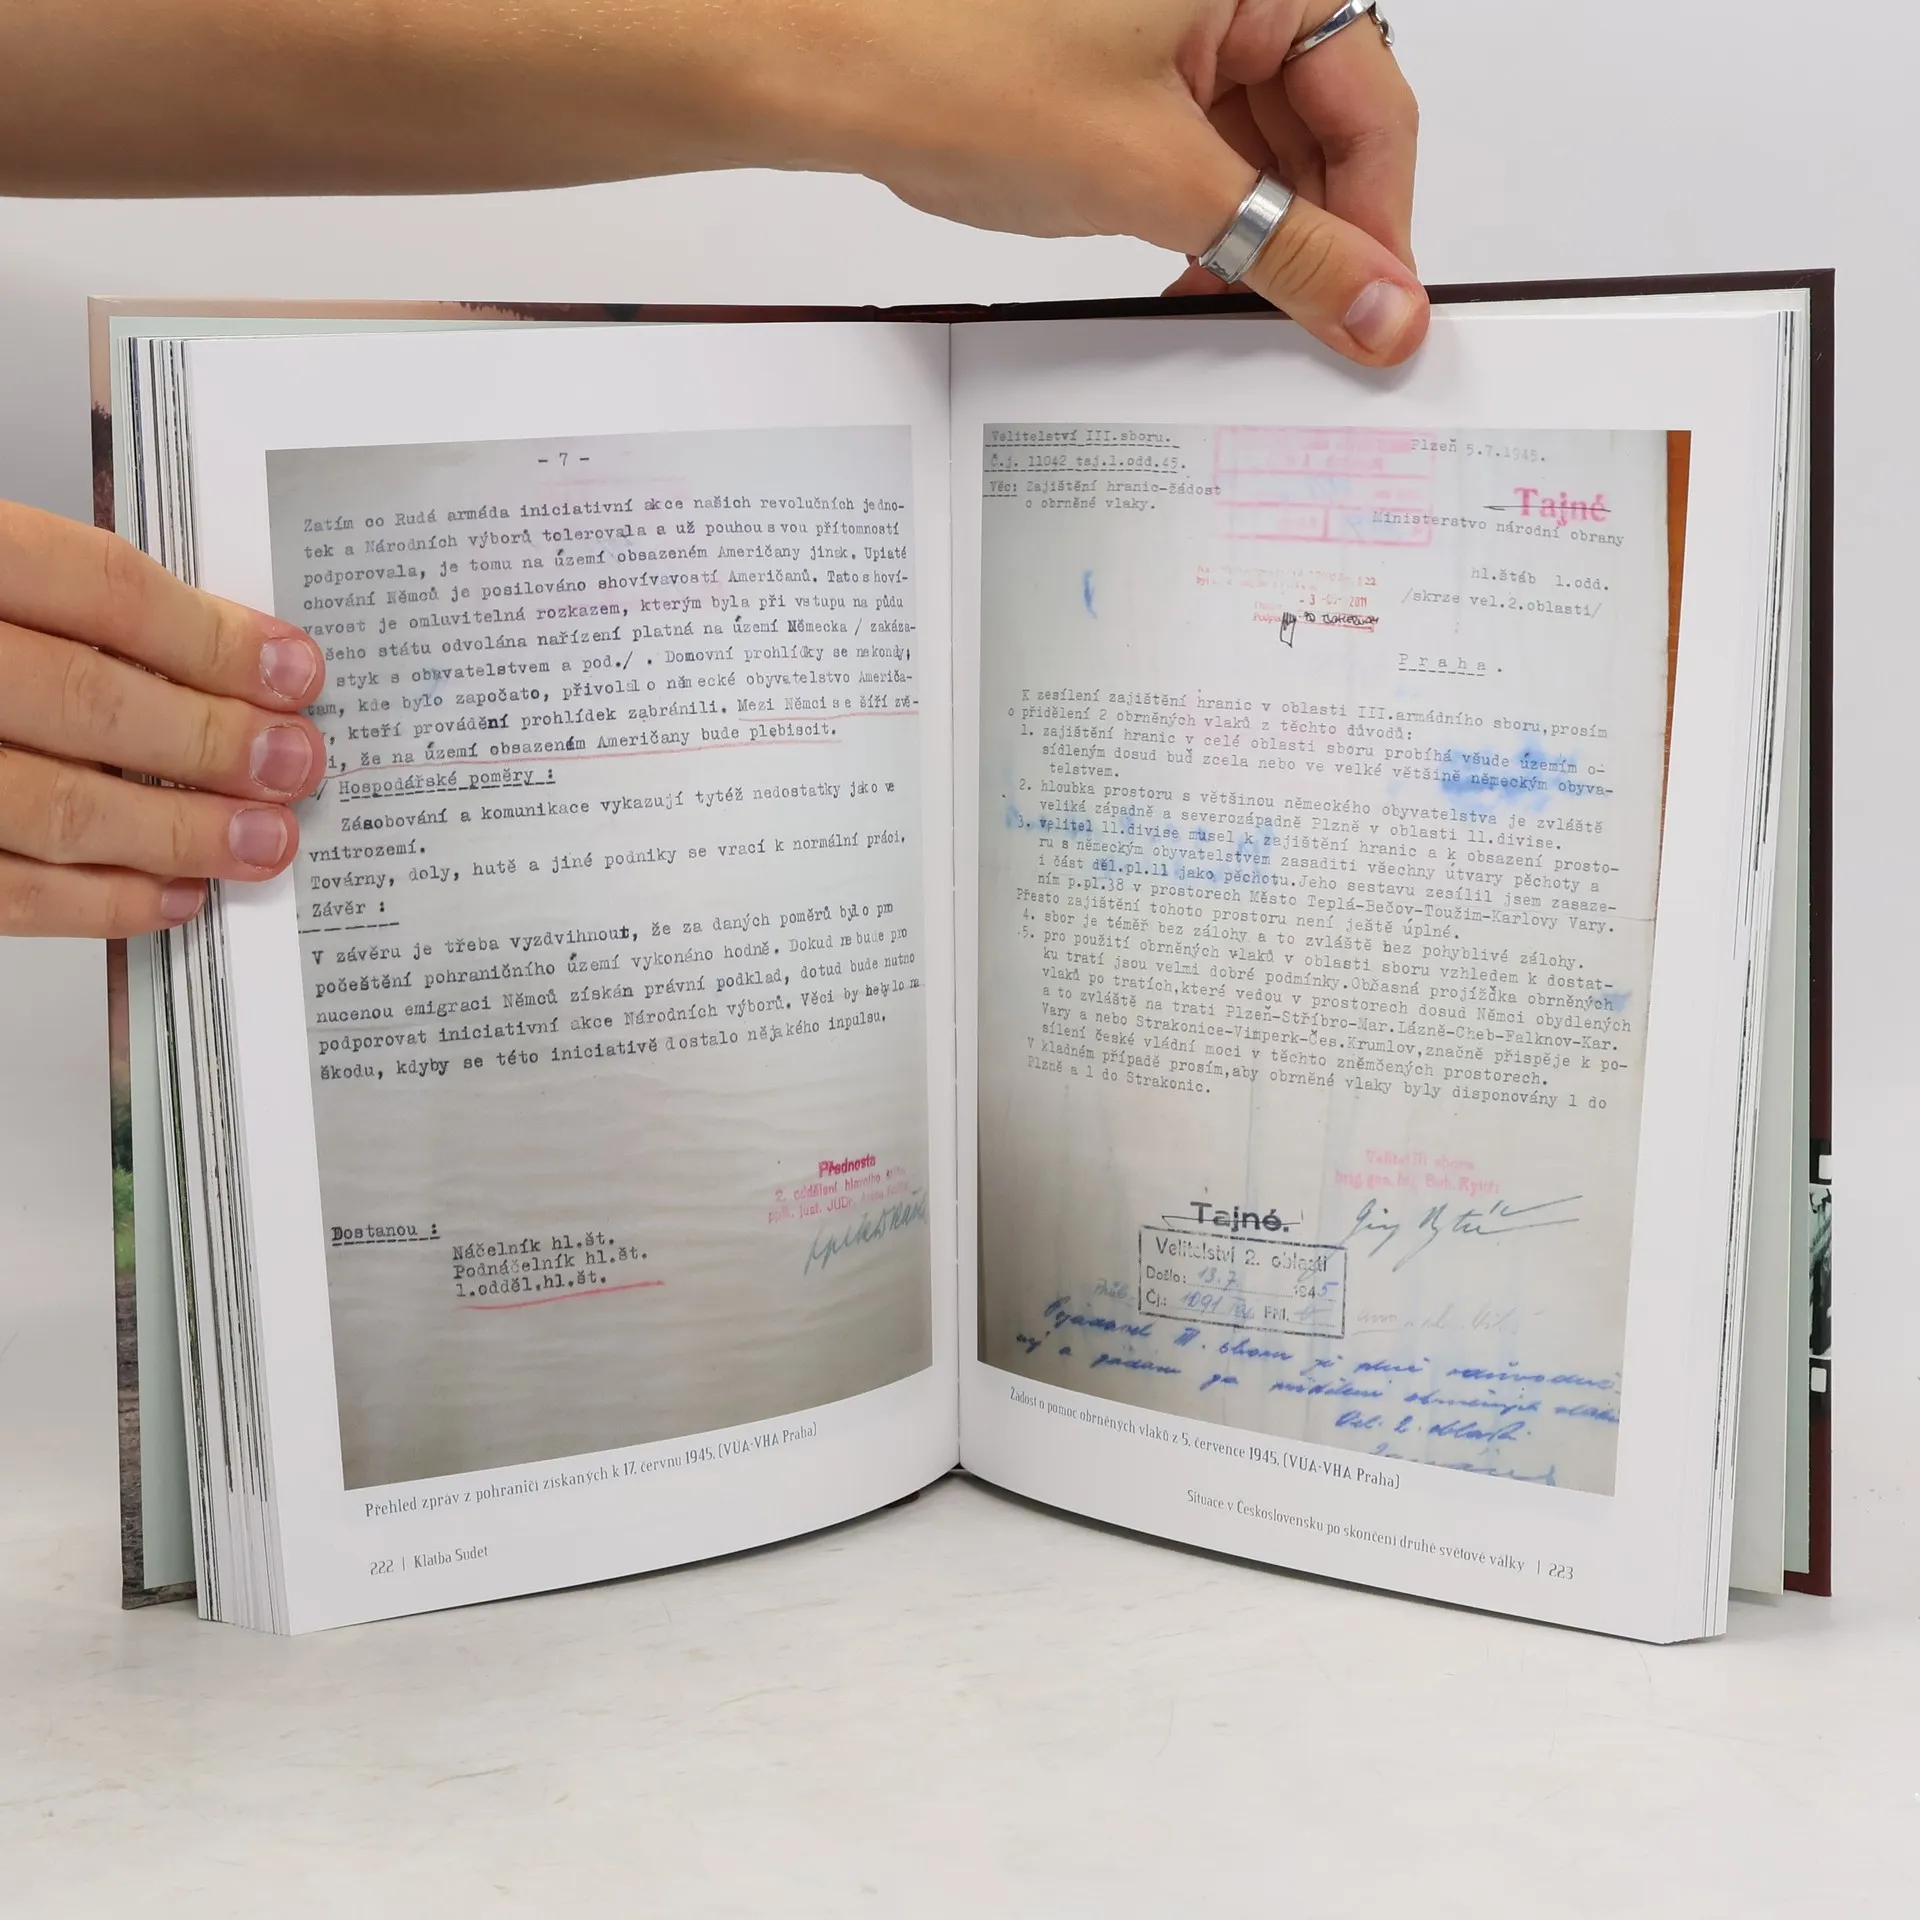 - 7 -
Zatím co Rudá armáda iniciativní akce našich revolučních jedno-
tek a Národních výborů tolerovala a už pouhou svou přítomností
podporovala, je tomu na území obsazeném Američany jinak. Upiaté
chování Němců je posilováno shovívavostí Američanů. Tato shoví-
vavost je omluvitelná rozkazem, kterým byla při vstupu na půdu
šeho státu odvolána nařízení platná na území Německa / zakáza-
styk s obyvatelstvem a pod./ . Domovní prohlídky se nekonaly;
tam, kde bylo započato, přivolalo německé obyvatelstvo Američa-
, kteří provádění prohlídek zabránili. Mezi Němci se šíří zvě-
i, že na území obsazeném Američany bude plebiscit.
/ Hospodářské poměry :
Zásobování a komunikace vykazují tytéž nedostatky jako ve
vnitrozemí.
Továrny, doly, hutě a jiné podniky se vrací k normální práci.
Závěr :
V závěru je třeba vyzdvihnout, že za daných poměrů bylo pro
počeštění pohraničního území vykonáno hodně. Dokud nebude pro
nucenou emigraci Němců získán právní podklad, dotud bude nutno
podporovat iniciativní akce Národních výborů. Věci by nebylo na
škodu, kdyby se této iniciativě dostalo nějakého inpulsu.
Přednosta
2. oddělení hlavního
JUDr.
Dostanou :
Náčelník hl.št.
Podnáčelník hl.št.
1.odděl.hl.št.
Přehled zpráv z pohraničí získaných k 17. červnu 1945. (VÚA-VHA Praha)
222 | Klatba Sudet
Velitelství III.sboru.
Č.j. 11042 taj.1.odd.45.
Věc: Zajištění hranic-žádost
o obrněné vlaky.
Plzeň 5.7.1945.
Tajné
Ministerstvo národní obrany
hl.štáb 1.odd.
/skrze vel.2.oblasti/
2011
Praha.
K zesílení zajištění hranic v oblasti III.armádního sboru,prosím
o přidělení 2 obrněných vlaků z těchto důvodů:
1. zajištění hranic v celé oblasti sboru probíhá všude územím o-
sídleným dosud buď zcela nebo ve velké většině německým obyva-
telstvem.
2. hloubka prostoru s většinou německého obyvatelstva je zvláště
veliká západně a severozápadně Plzně v oblasti 11.divise.
3. velitel 11.divise musel k zajištění hranic a k obsazení prosto-
ru s německým obyvatelstvem zasaditi všechny útvary pěchoty a
i část děl.pl.11 jako pěchotu.Jeho sestavu zesílil jsem zasaze-
ním p.pl.38 v prostorech Město Teplá-Bečov-Toužim-Karlovy Vary.
Přesto zajištění tohoto prostoru není ještě úplné.
4. sbor je téměř bez zálohy a to zvláště bez pohyblivé zálohy.
5. pro použití obrněných vlaků v oblasti sboru vzhledem k dostat-
ku tratí jsou velmi dobré podmínky.Občasná projížďka obrněných
vlaků po tratích,které vedou v prostorech dosud Němci obydlených
a to zvláště na trati Plzeň-Stříbro-Mar.Lázně-Cheb-Falknov-Kar.
Vary a nebo Strakonice-Vimperk-Čes.Krumlov,značně přispěje k po-
sílení české vládní moci v těchto zněmčených prostorech.
V kladném případě prosím,aby obrněné vlaky byly disponovány 1 do
Plzně a 1 do Strakonic.
Tajné.
Velitelství 2. oblasti
Došlo: 13.7. 1945
Čj.: 1091 Taj. Příl.
Požadavek III. sboru je plně
a žádám o přidělení obrněných vlaků
Vel. 2. oblasti
Žádost o pomoc obrněných vlaků z 5. července 1945. (VÚA-VHA Praha)
Situace v Československu po skončení druhé světové války | 223